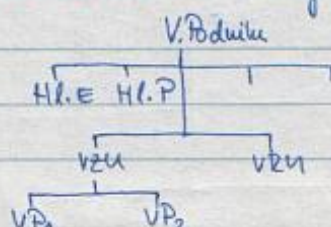 V. Podniku
Hl. E Hl. P
VZU VRU
VP1 VP2